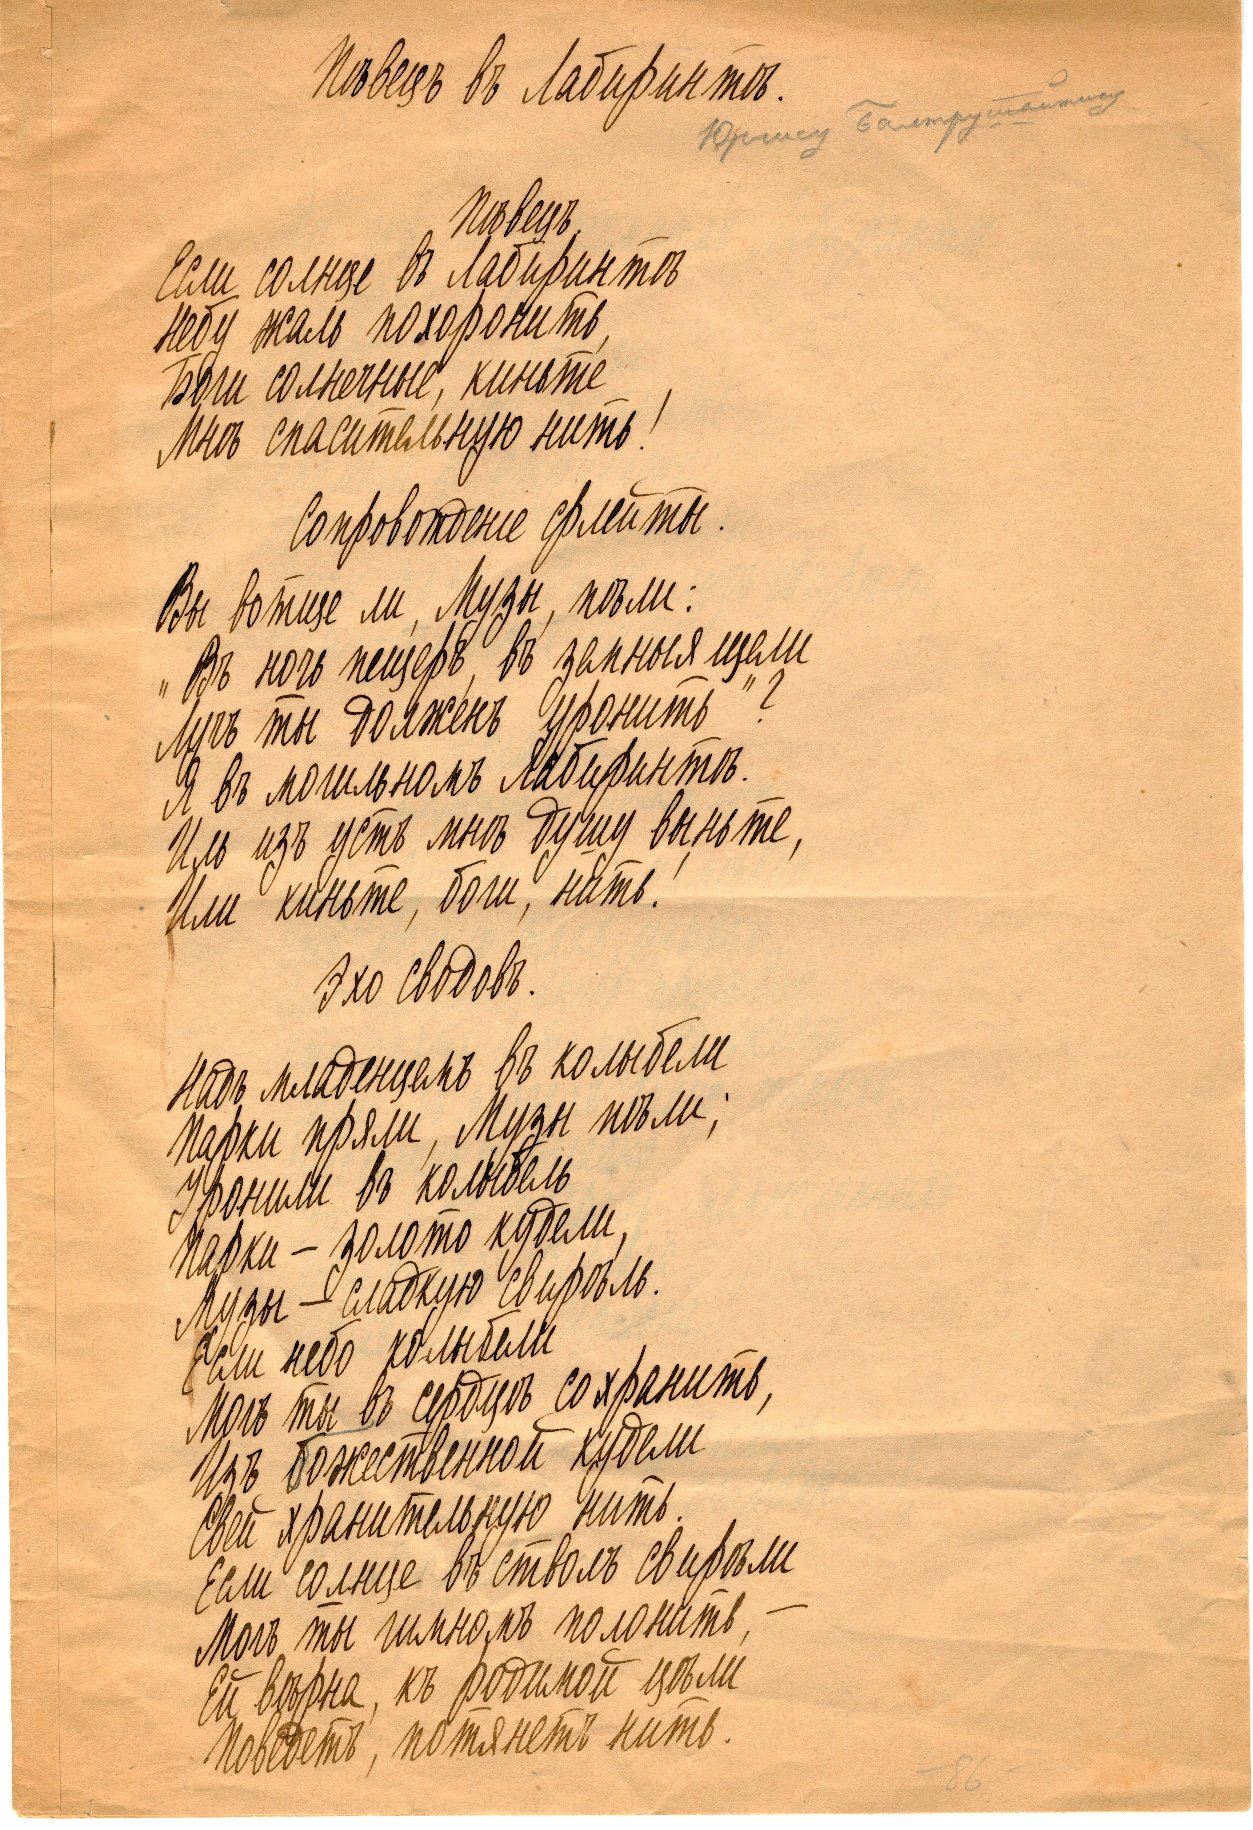 Пѣвецъ въ Лабиринтѣ.
Юргису Балтрушайтису
Пѣвецъ.
Если солнце въ Лабиринтѣ
Небу жаль похоронить,
Боги солнечные, киньте
Мнѣ спасительную нить!
Сопровожденіе флейты.
Вы вотще ли, Музы, пѣли:
„Въ ночь пещеръ, въ земныя щели
Лучъ ты долженъ уронить"?
Я въ могильномъ Лабиринтѣ.
Иль изъ устъ мнѣ душу выньте,
Или киньте, боги, нить!
Эхо сводовъ.
Надъ младенцемъ въ колыбели
Парки пряли, Музы пѣли;
Уронили въ колыбель
Парки – золото кудели,
Музы – сладкую свирѣль.
Если небо колыбели
Могъ ты въ сердцѣ сохранить,
Изъ божественной кудели
Свей хранительную нить.
Если солнце въ стволъ свирѣли
Могъ ты гимномъ полонить, –
Ей вѣрна, къ родимой цѣли
Поведетъ, потянетъ нить.
86